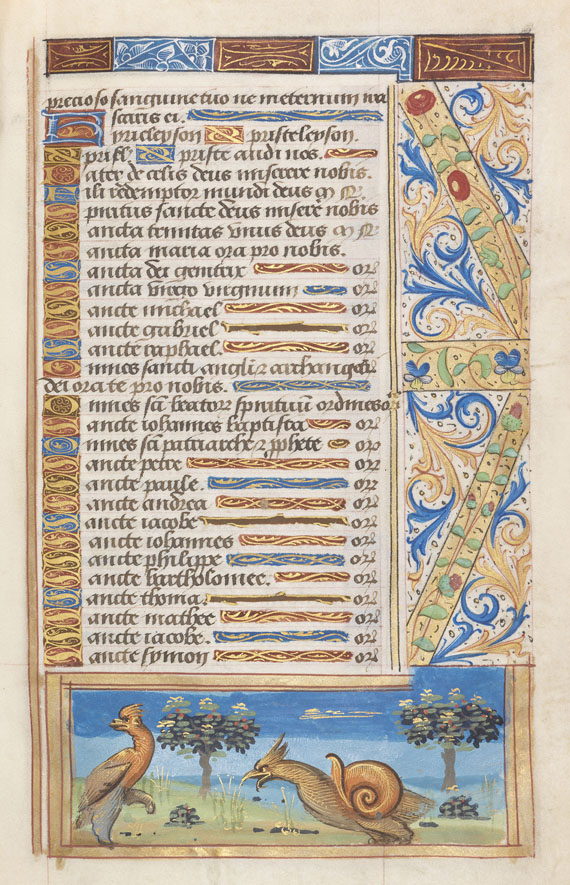 precioso sanguine tuo ne in eternum ira
scaris ei.
Kirieleyson Christeleyson.
Kyriel Christe audi nos.
Pater de celis deus miserere nobis.
fili redemptor mundi deus m
Spiritus sancte deus misere nobis
Sancta trinitas unus deus m
Sancta maria ora pro nobis.
Sancta dei genitrix or
Sancta virgo virginum or
Sancte michael or
Sancte gabriel or
Sancte raphael. or
Omnes sancti angli et archangeli
dei orate pro nobis.
Omnes sci beator spirituum ordines or
Sancte iohannes baptista or
Omnes sci patriarche et pphete or
Sancte petre or
Sancte paule. or
Sancte andrea or
Sancte iacobe or
Sancte iohannes or
Sancte philippe or
Sancte bartholomee. or
Sancte thoma. or
Sancte mathee or
Sancte iacobe. or
Sancte symon or